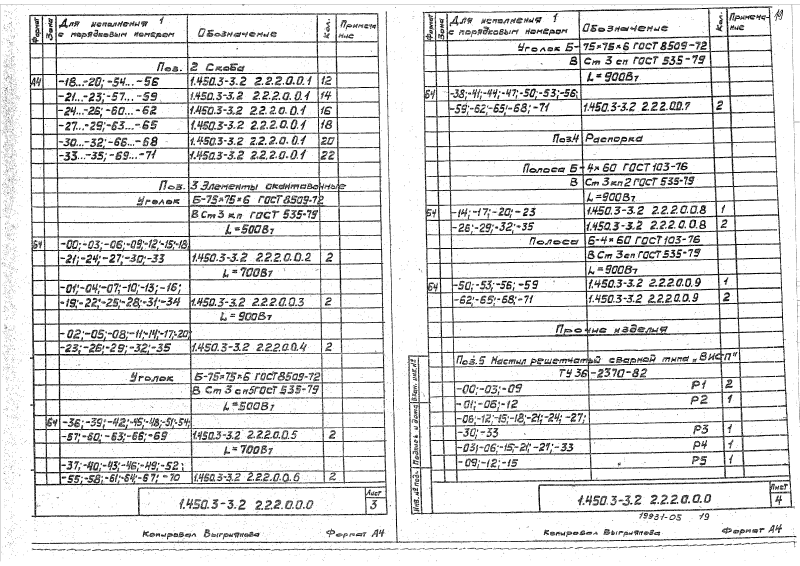 Формат
Зона
Для исполнения 1 с порядковым номером
Обозначение
Кол.
Примечание
Поз. 2 Скоба
А4 -18...-20; -54...-56 1.450.3-3.2 2.2.2.0.0.1 12
-21...-23; -57...-59 1.450.3-3.2 2.2.2.0.0.1 14
-24...-26; -60...-62 1.450.3-3.2 2.2.2.0.0.1 16
-27...-29; -63...-65 1.450.3-3.2 2.2.2.0.0.1 18
-30...-32; -66...-68 1.450.3-3.2 2.2.2.0.0.1 20
-33...-35; -69...-71 1.450.3-3.2 2.2.2.0.0.1 22
Поз. 3 Элементы окантовочные
Уголок Б-75×75×6 ГОСТ 8509-72
ВСт3кп ГОСТ 535-79
L=500Вт
Б4 -00;-03;-06;-09;-12;-15;-18;
-21;-24;-27;-30;-33 1.450.3-3.2 2.2.2.0.0.2 2
L=700Вт
-01;-04;-07;-10;-13;-16;
-19;-22;-25;-28;-31;-34 1.450.3-3.2 2.2.2.0.0.3 2
L=900Вт
-02;-05;-08;-11;-14;-17;-20;
-23;-26;-29;-32;-35 1.450.3-3.2 2.2.2.0.0.4 2
Уголок Б-75×75×6 ГОСТ 8509-72
ВСт3сп5 ГОСТ 535-79
L=500Вт
Б4 -36;-39;-42;-45;-48;-51;-54;
-57;-60;-63;-66;-69 1.450.3-3.2 2.2.2.0.0.5 2
L=700Вт
-37;-40;-43;-46;-49;-52;
-55;-58;-61;-64;-67;-70 1.450.3-3.2 2.2.2.0.0.6 2
1.450.3-3.2 2.2.2.0.0.0
Лист
3
Копировал Выгриянова Формат А4
19
Формат
Зона
Для исполнения 1 с порядковым номером
Обозначение
Кол.
Примечание
Уголок Б-75×75×6 ГОСТ 8509-72
ВСт3сп ГОСТ 535-79
L=900Вт
Б4 -38;-41;-44;-47;-50;-53;-56;
-59;-62;-65;-68;-71 1.450.3-3.2 2.2.2.0.0.7 2
Поз.4 Распорка
Полоса Б-4×60 ГОСТ 103-76
ВСт3кп2 ГОСТ 535-79
L=900Вт
Б4 -14;-17;-20;-23 1.450.3-3.2 2.2.2.0.0.8 1
-26;-29;-32;-35 1.450.3-3.2 2.2.2.0.0.8 2
Полоса Б-4×60 ГОСТ 103-76
ВСт3сп ГОСТ 535-79
L=900Вт
Б4 -50;-53;-56;-59 1.450.3-3.2 2.2.2.0.0.9 1
-62;-65;-68;-71 1.450.3-3.2 2.2.2.0.0.9 2
Прочие изделия
Поз.5 Настил решетчатый сварной типа „ВИСП"
ТУ 36-2370-82
-00;-03;-09 Р1 2
-01;-06;-12 Р2 1
-06;-12;-15;-18;-21;-24;-27;
-30;-33 Р3 1
-03;-06;-15;-21;-27;-33 Р4 1
-09;-12;-15 Р5 1
Инв. № подл. Подпись и дата Взам. инв. №
1.450.3-3.2 2.2.2.0.0.0
Лист
4
19931-03 19
Копировал Выгриянова Формат А4